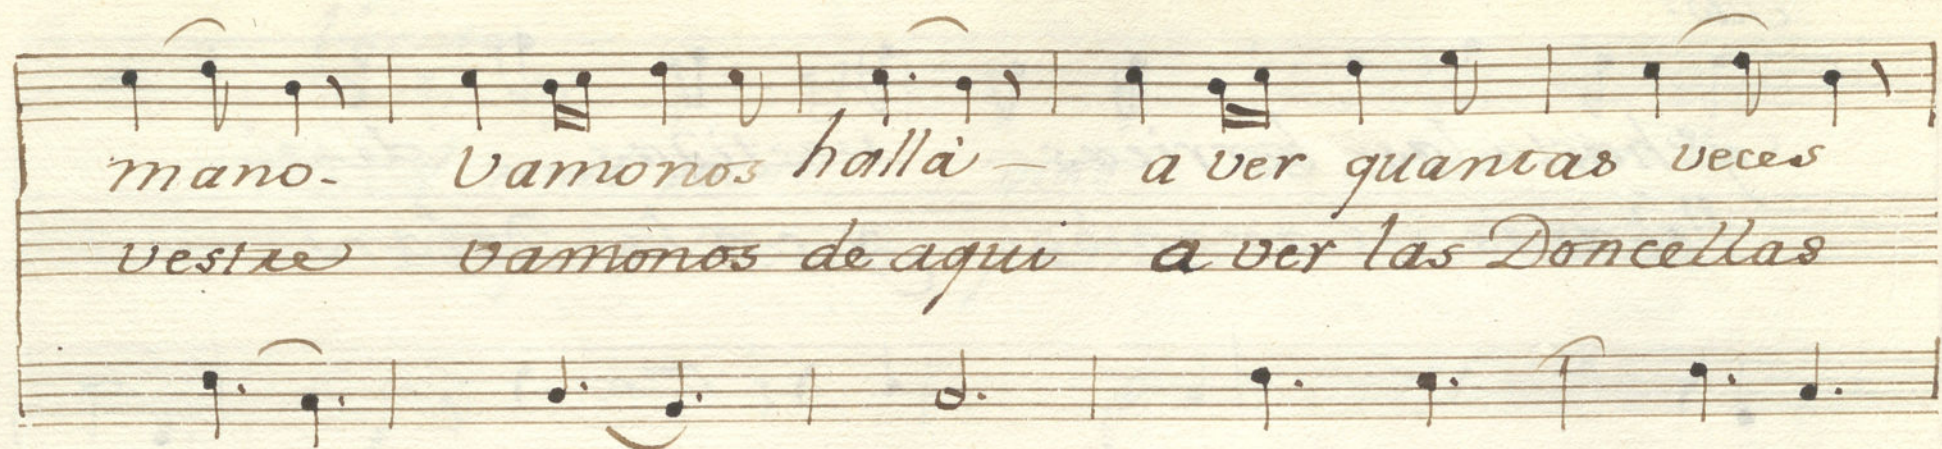 mano- Vamonos hallà - a ver quantas veces
vestre vamonos de aqui a ver las Doncellas